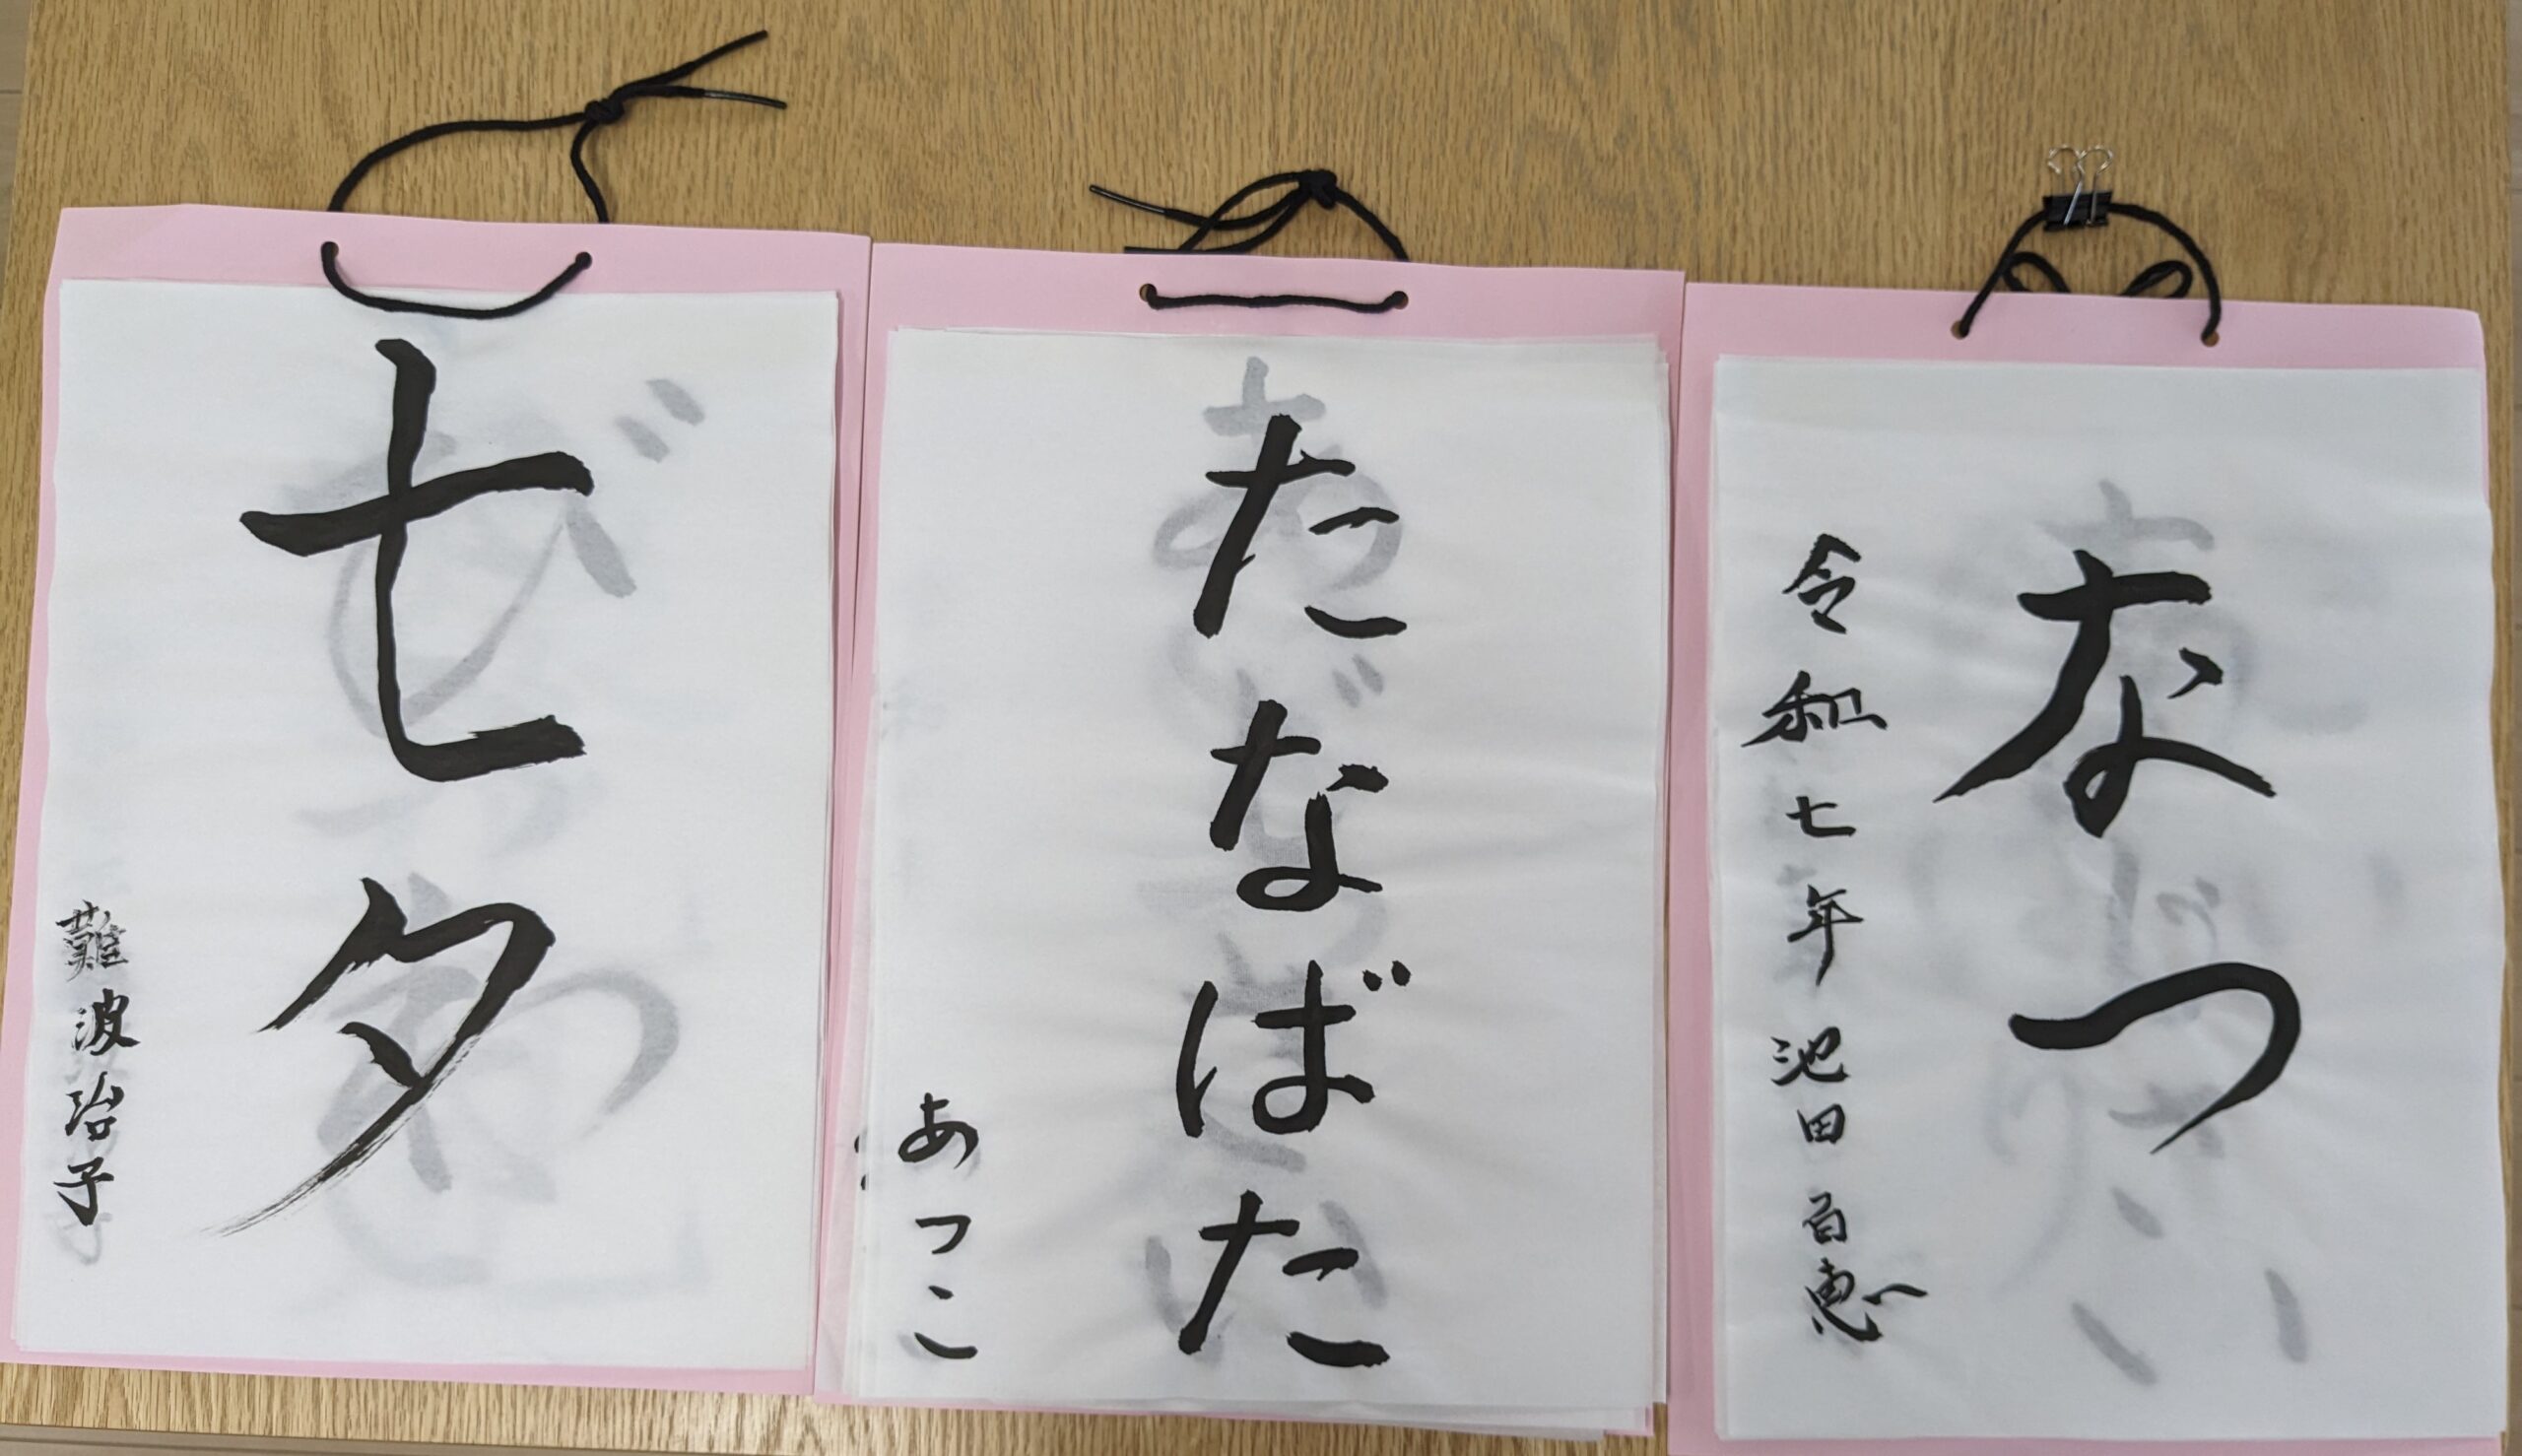 七夕
難波治子
たなばた
あつこ
なつ
令和七年 池田百恵